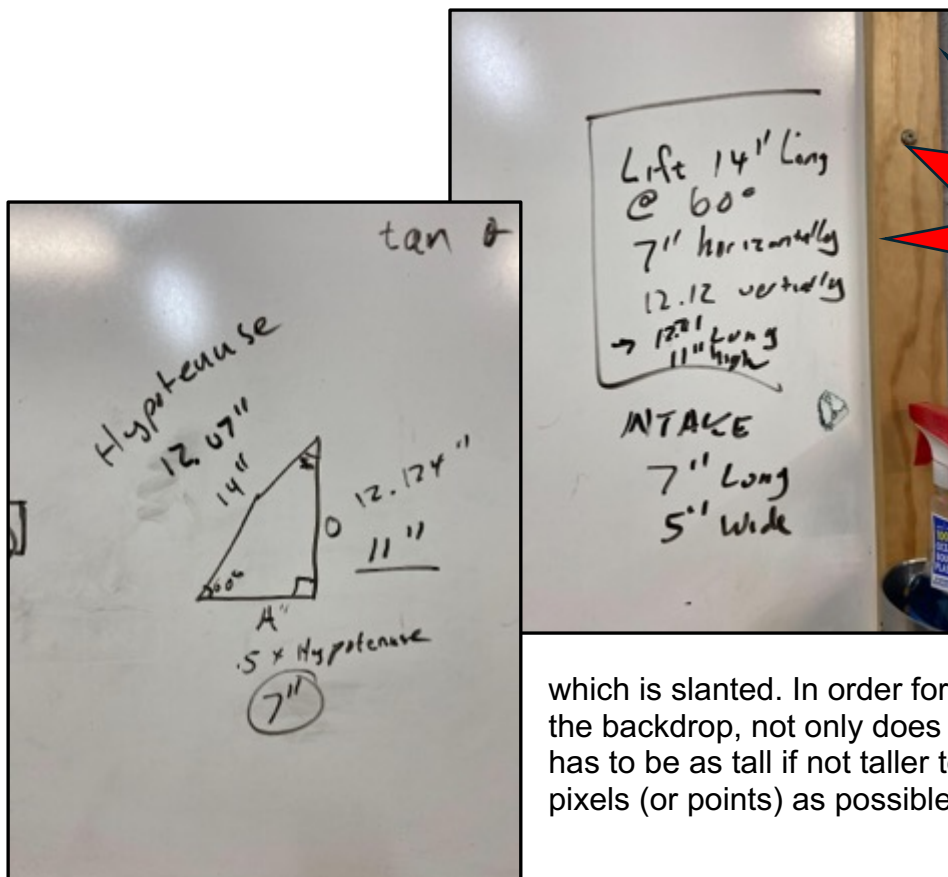 tan θ
Hypotenuse
12.07"
14"
12.124"
O
11"
60°
A"
.5 x Hypotenuse
7"
Lift 14" Long
@ 60°
7" horizontally
12.12 vertically
→ 12.21 Long
11" high
INTAKE
7" Long
5" Wide
100
which is slanted. In order for
the backdrop, not only does
has to be as tall if not taller t
pixels (or points) as possible